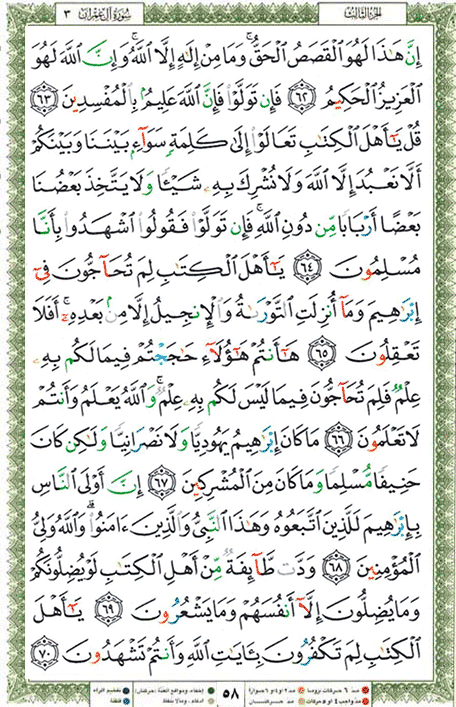 الجزء الثالث
سورة آل عمران ٣
إِنَّ هَـٰذَا لَهُوَ ٱلْقَصَصُ ٱلْحَقُّ ۚ وَمَا مِنْ إِلَـٰهٍ إِلَّا ٱللَّهُ ۚ وَإِنَّ ٱللَّهَ لَهُوَ
ٱلْعَزِيزُ ٱلْحَكِيمُ ٦٢ فَإِن تَوَلَّوْا۟ فَإِنَّ ٱللَّهَ عَلِيمٌۢ بِٱلْمُفْسِدِينَ ٦٣
قُلْ يَـٰٓأَهْلَ ٱلْكِتَـٰبِ تَعَالَوْا۟ إِلَىٰ كَلِمَةٍ سَوَآءٍۭ بَيْنَنَا وَبَيْنَكُمْ
أَلَّا نَعْبُدَ إِلَّا ٱللَّهَ وَلَا نُشْرِكَ بِهِۦ شَيْـًٔا وَلَا يَتَّخِذَ بَعْضُنَا
بَعْضًا أَرْبَابًا مِّن دُونِ ٱللَّهِ ۚ فَإِن تَوَلَّوْا۟ فَقُولُوا۟ ٱشْهَدُوا۟ بِأَنَّا
مُسْلِمُونَ ٦٤ يَـٰٓأَهْلَ ٱلْكِتَـٰبِ لِمَ تُحَآجُّونَ فِىٓ
إِبْرَٰهِيمَ وَمَآ أُنزِلَتِ ٱلتَّوْرَىٰةُ وَٱلْإِنجِيلُ إِلَّا مِنۢ بَعْدِهِۦٓ ۚ أَفَلَا
تَعْقِلُونَ ٦٥ هَـٰٓأَنتُمْ هَـٰٓؤُلَآءِ حَـٰجَجْتُمْ فِيمَا لَكُم بِهِۦ
عِلْمٌ فَلِمَ تُحَآجُّونَ فِيمَا لَيْسَ لَكُم بِهِۦ عِلْمٌ ۚ وَٱللَّهُ يَعْلَمُ وَأَنتُمْ
لَا تَعْلَمُونَ ٦٦ مَا كَانَ إِبْرَٰهِيمُ يَهُودِيًّا وَلَا نَصْرَانِيًّا وَلَـٰكِن كَانَ
حَنِيفًا مُّسْلِمًا وَمَا كَانَ مِنَ ٱلْمُشْرِكِينَ ٦٧ إِنَّ أَوْلَى ٱلنَّاسِ
بِإِبْرَٰهِيمَ لَلَّذِينَ ٱتَّبَعُوهُ وَهَـٰذَا ٱلنَّبِىُّ وَٱلَّذِينَ ءَامَنُوا۟ ۗ وَٱللَّهُ وَلِىُّ
ٱلْمُؤْمِنِينَ ٦٨ وَدَّت طَّآئِفَةٌ مِّنْ أَهْلِ ٱلْكِتَـٰبِ لَوْ يُضِلُّونَكُمْ
وَمَا يُضِلُّونَ إِلَّآ أَنفُسَهُمْ وَمَا يَشْعُرُونَ ٦٩ يَـٰٓأَهْلَ
ٱلْكِتَـٰبِ لِمَ تَكْفُرُونَ بِـَٔايَـٰتِ ٱللَّهِ وَأَنتُمْ تَشْهَدُونَ ٧٠
٥٨